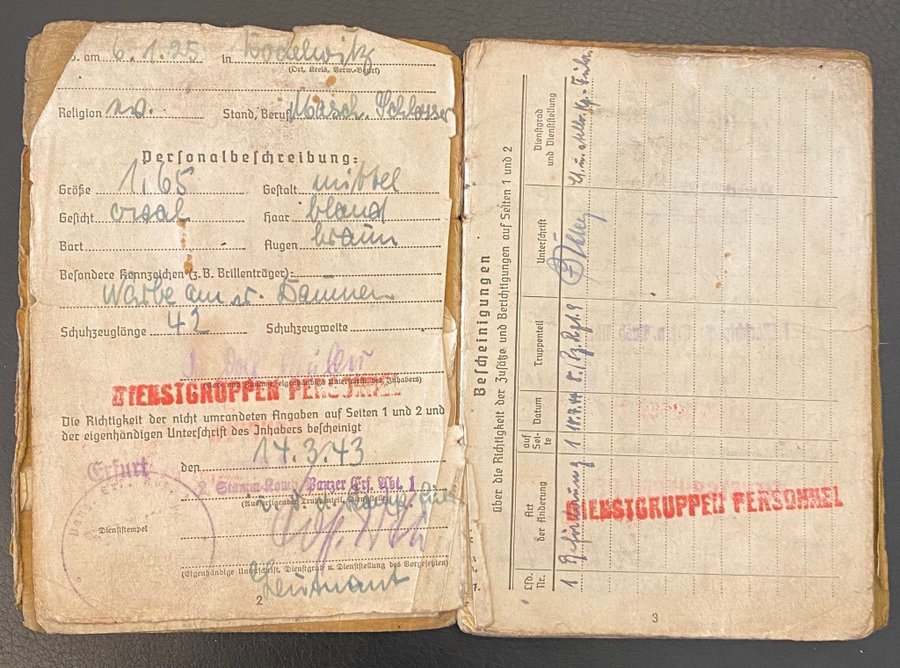 am 6.1.25 in
(Ort, Kreis, Verw.-Bezirk)
Religion ev. Stand, Beruf Masch. Schlosser
Personalbeschreibung:
Größe 1,65 Gestalt mittel
Gesicht oval Haar blond
Bart Augen braun
Besondere Kennzeichen (z.B. Brillenträger):
Narbe am r. Daumen
Schuhzeuglänge 42 Schuhzeugweite
eigenhändige Unterschrift des Inhabers)
DIENSTGRUPPEN PERSONNEL
Die Richtigkeit der nicht umrandeten Angaben auf Seiten 1 und 2 und
der eigenhändigen Unterschrift des Inhabers bescheinigt
Erfurt den 14.3.43
2 Stamm-Komp. Panzer Ers. Abt. 1
Dienststempel
(Eigenhändige Unterschrift, Dienstgrad u. Dienststellung des Vorgesetzten)
Leutnant
2
Bescheinigungen
über die Richtigkeit der Zusätze und Berichtigungen auf Seiten 1 und 2
Lfd. Nr.
Art der Änderung
auf Seite
Datum
Truppenteil
Unterschrift
Dienstgrad und Dienststellung
1 Beförderung 1
DIENSTGRUPPEN PERSONNEL
3